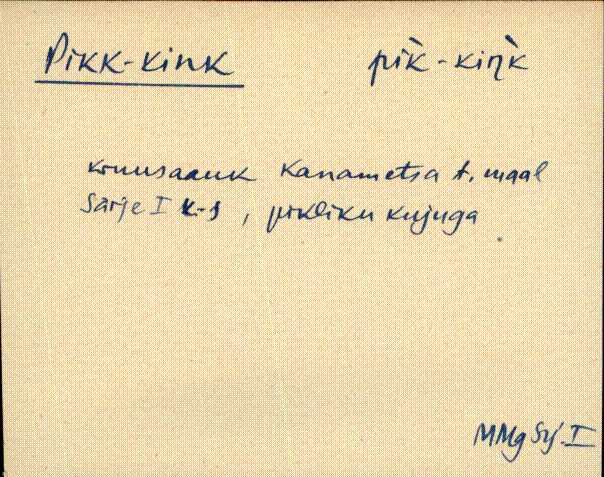 Pikk-kink pìk̀-kiŋ̀k
kruusaauk Kanametsa t. maal
Särje I k-s, pikliku kujuga
MMg Sj. I